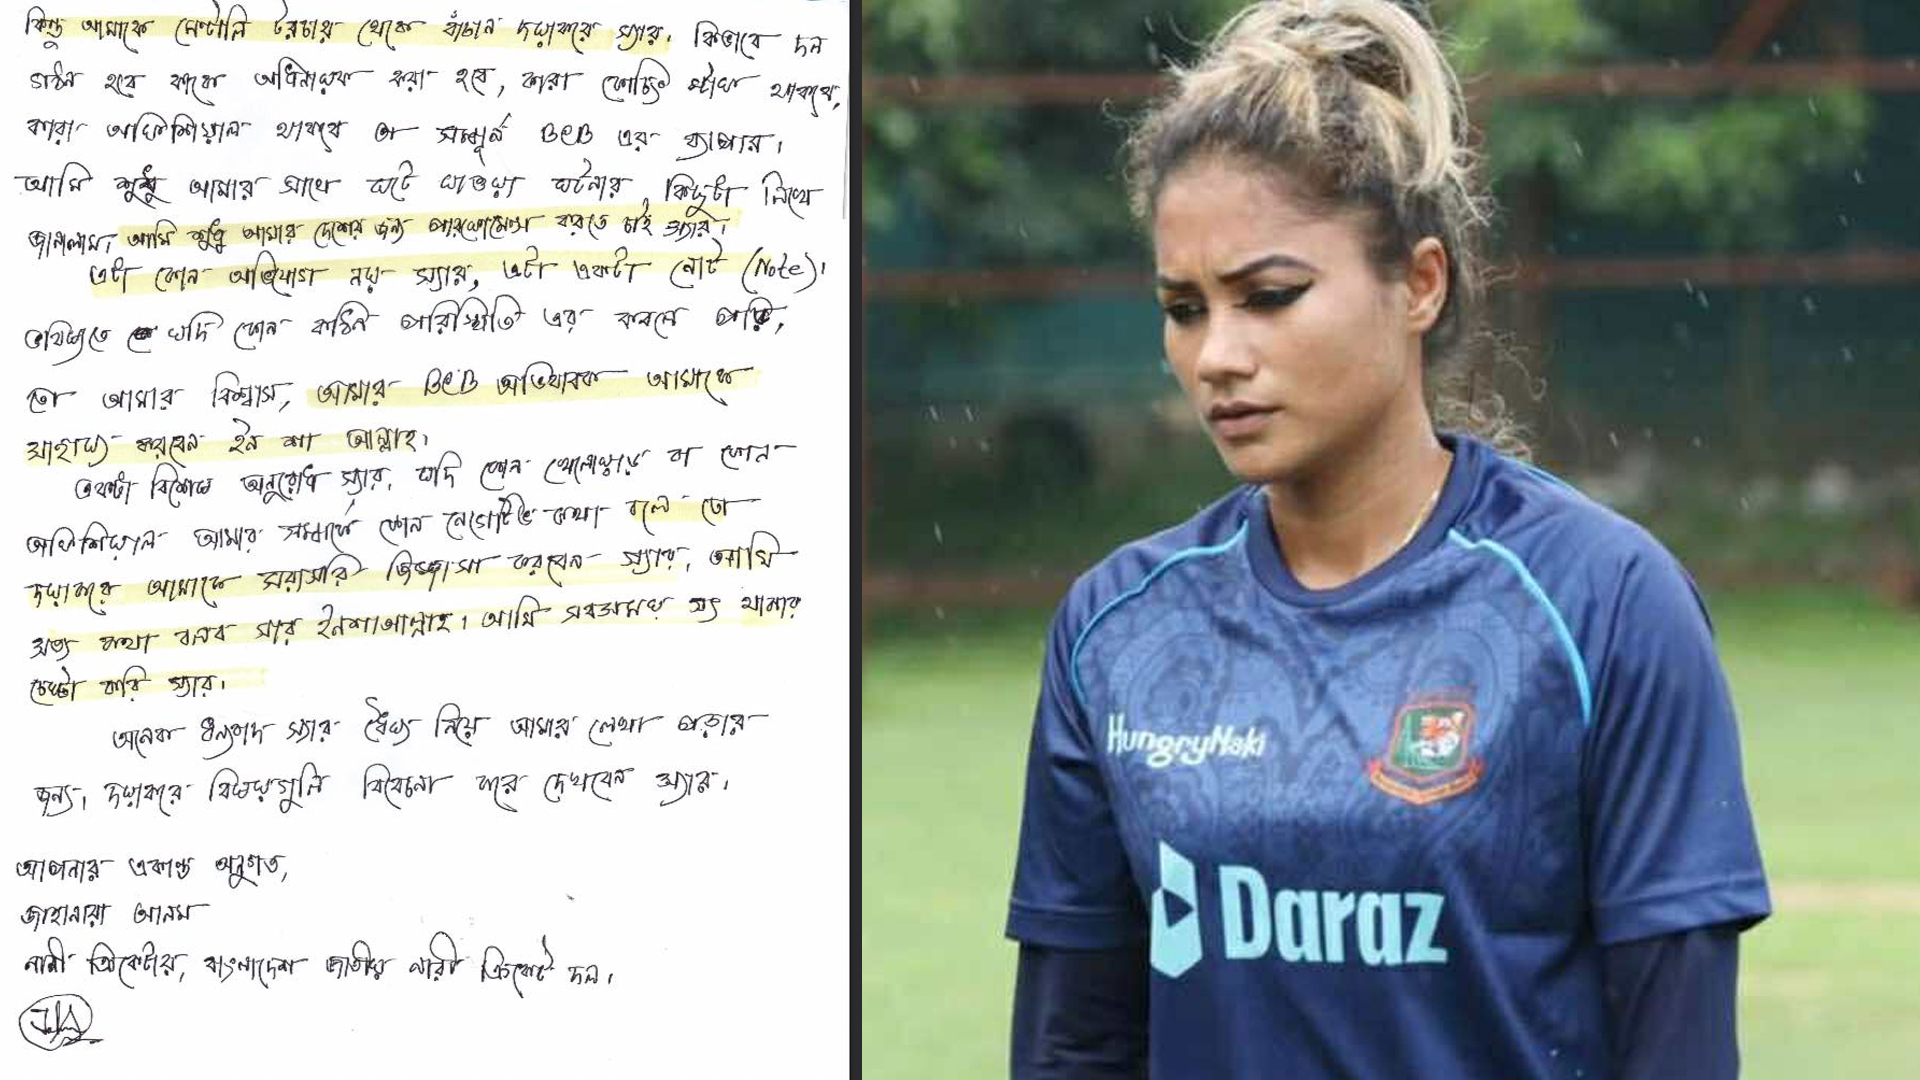 কিন্তু আমাকে মেন্টালি টরচার থেকে বাঁচান দয়াকরে স্যার। কিভাবে দল
গঠন হবে কাকে অধিনায়ক করা হবে, কারা কোচিং স্টাফ থাকবে,
কারা অফিশিয়াল থাকবে তা সম্পূর্ন BCB এর ব্যাপার।
আমি শুধু আমার সাথে ঘটে যাওয়া ঘটনার কিছুটা লিখে
জানালাম। আমি শুধু আমার দেশের জন্য পারফোমেন্স করতে চাই স্যার।
এটা কোন অভিযোগ নয় স্যার, এটা একটা নোট (Note)।
ভবিষ্যতে যদি কোন কঠিন পরিস্থিতি এর কবলে পরি,
তো আমার বিশ্বাস, আমার BCB অভিভাবক আমাকে
সাহায্য করবেন ইন শা আল্লাহ।
একটা বিশেষ অনুরোধ স্যার, যদি কোন খেলোয়াড় বা কোন
অফিশিয়াল আমার সম্পর্কে কোন নেগেটিভ কথা বলে তো
দয়াকরে আমাকে সরাসরি জিজ্ঞাসা করবেন স্যার, আমি
সত্য কথা বলব স্যার ইনশাআল্লাহ। আমি সবসময় সৎ থাকার
চেষ্টা করি স্যার।
অনেক ধন্যবাদ স্যার ধৈর্য্য নিয়ে আমার লেখা পড়ার
জন্য। দয়াকরে বিষয়গুলি বিবেচনা করে দেখবেন স্যার।
আপনার একান্ত অনুগত,
জাহানারা আলম
নারী ক্রিকেটার, বাংলাদেশ জাতীয় নারী ক্রিকেট দল।
HungryNaki
Daraz